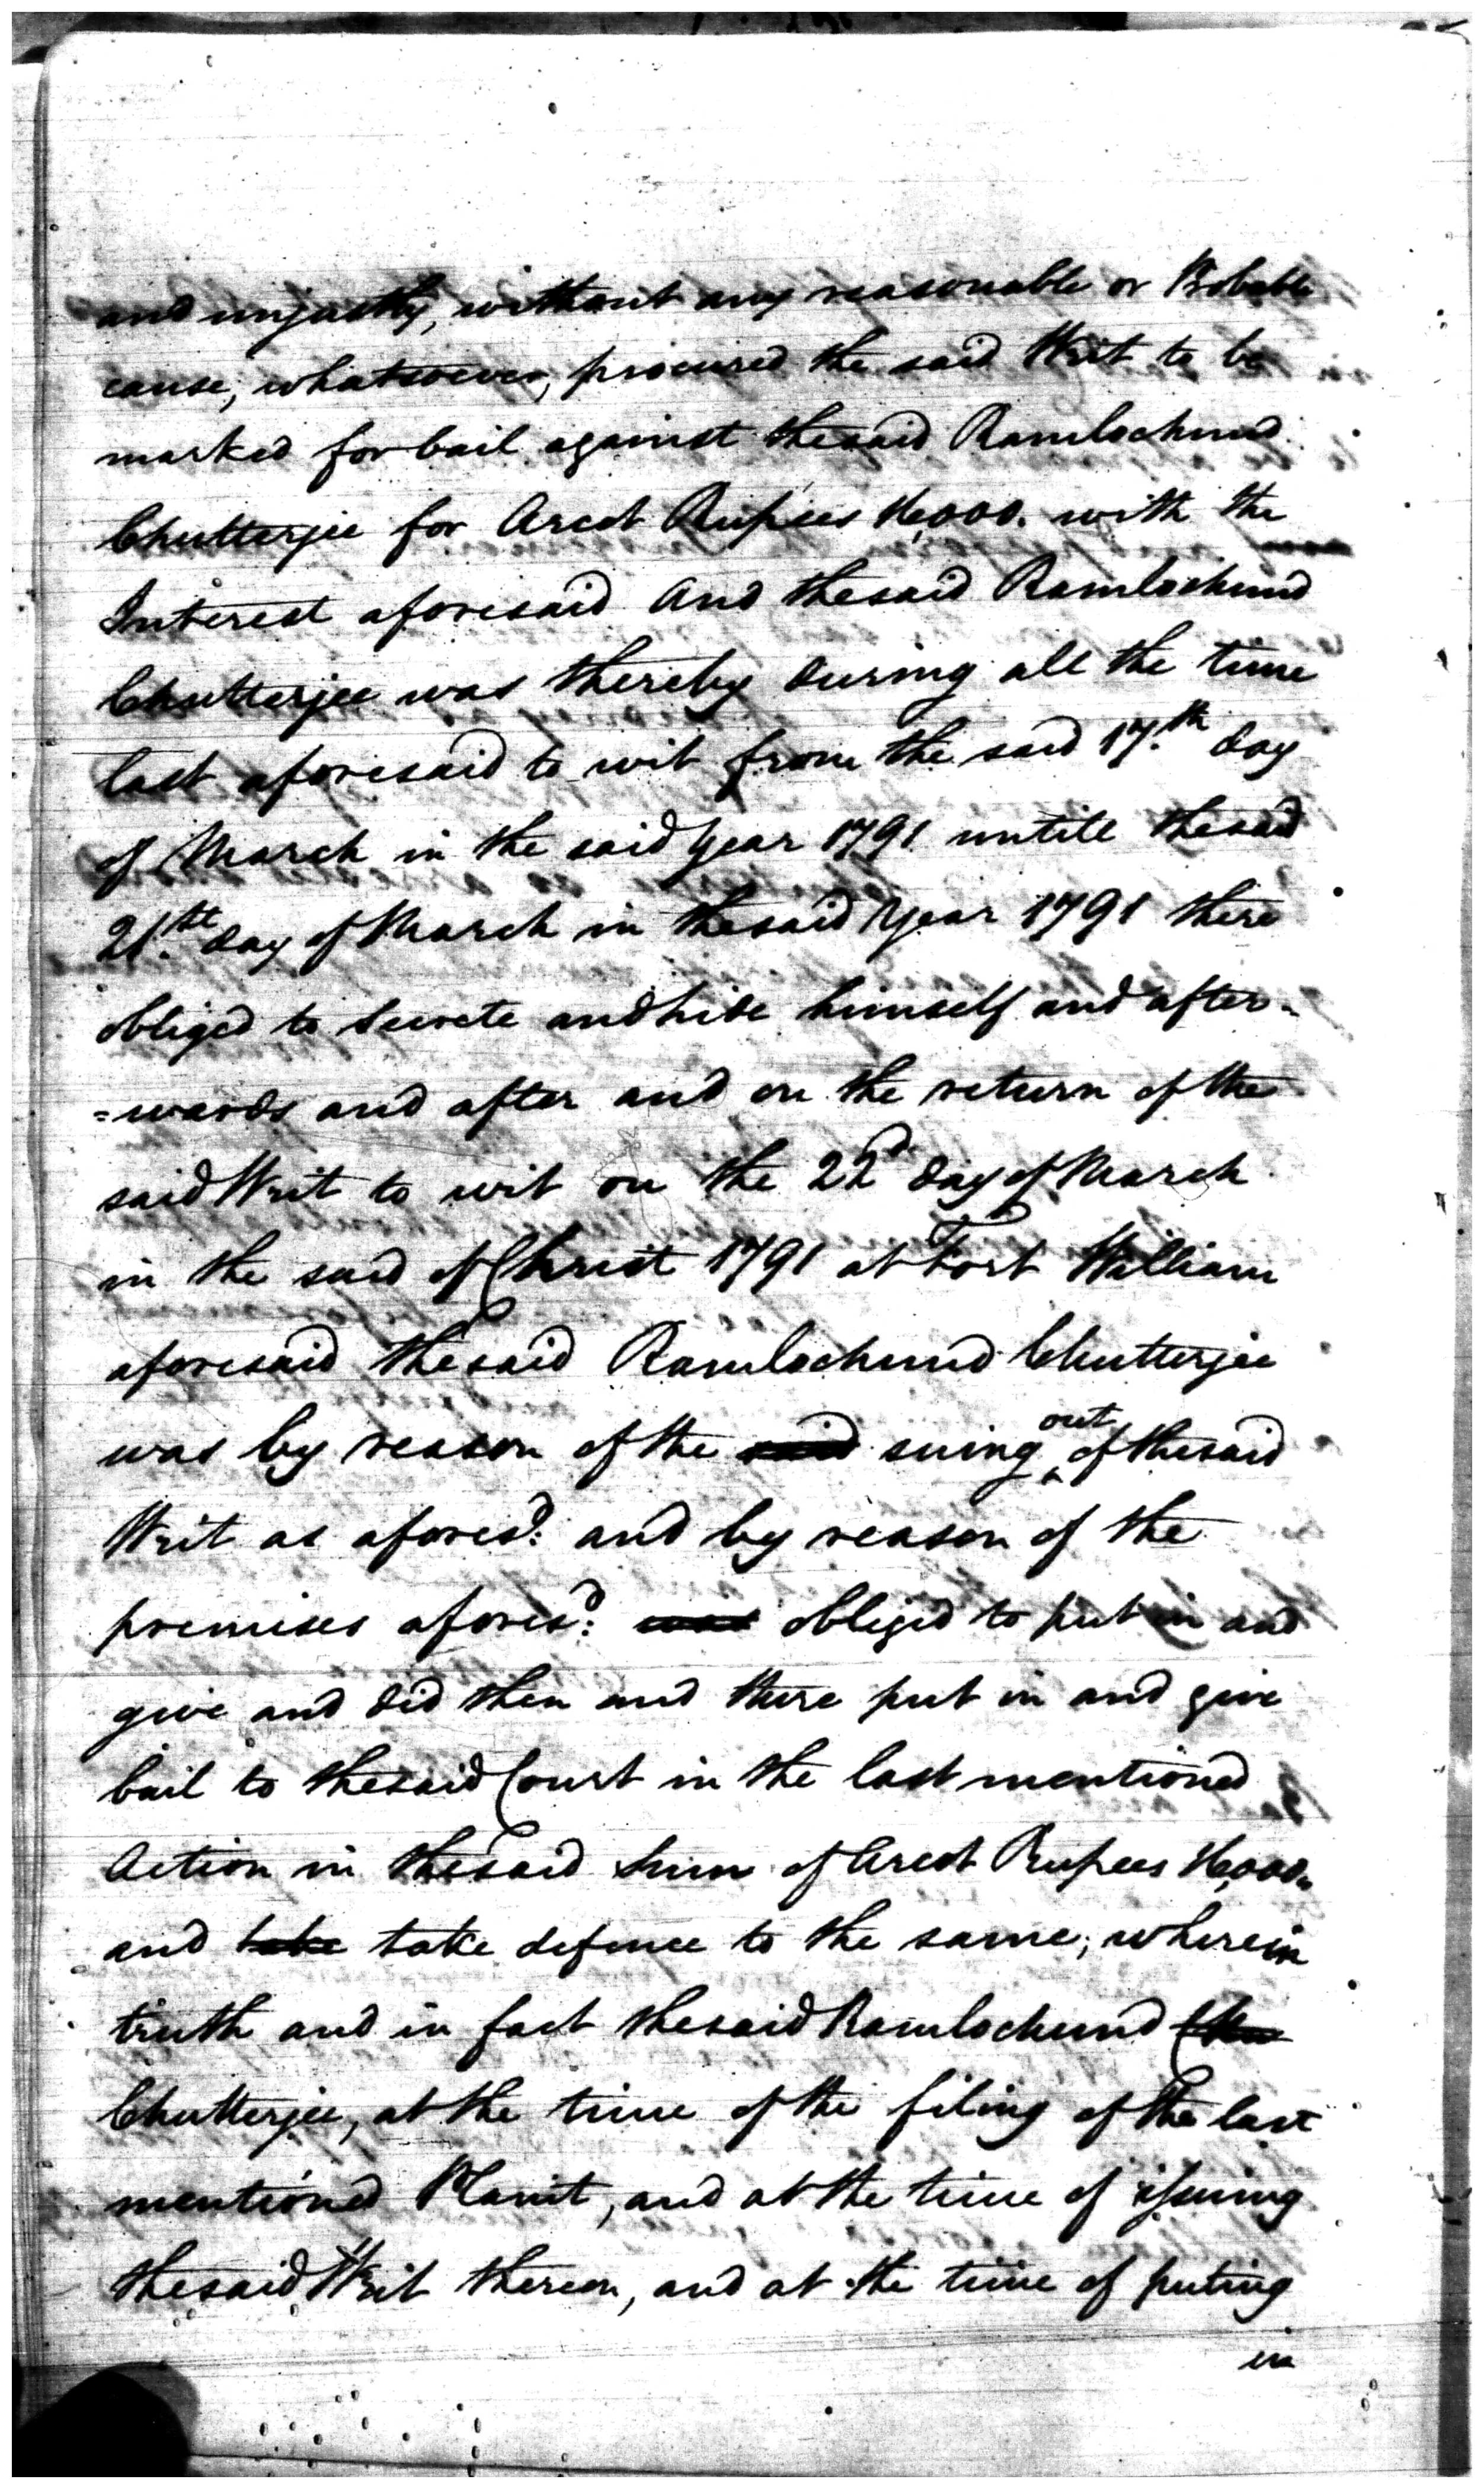 and unjustly, without any reasonable or Probable
cause, whatsoever, procured the said Writ to be
marked for bail against the said Ramlochund
Chutterjee for Arcot Rupees 16,000. with the
Interest aforesaid And the said Ramlochund
Chutterjee was thereby during all the time
last aforesaid to wit from the said 17.th day
of March in the said Year 1791 untill the said
21.st day of March in the said Year 1791 there
obliged to Secrete and hide himself and after-
=wards and after and on the return of the
said Writ to wit on the 22d day of March
in the said of Christ 1791 at Fort William
aforesaid the said Ramlochund Chutterjee
was by reason of the said suing out of the said
Writ as afores.d: and by reason of the
premises afores.d: was obliged to put in and
give and did then and there put in and give
bail to the said Court in the last mentioned
Action in the said Sum of Arcot Rupees 16,000.
and take take defence to the same; wherein
truth and in fact the said Ramlochund Chu
Chutterjee, at the time of the filing of the last
mentioned Plaint, and at the time of issuing
the said Writ thereon, and at the time of puting
in